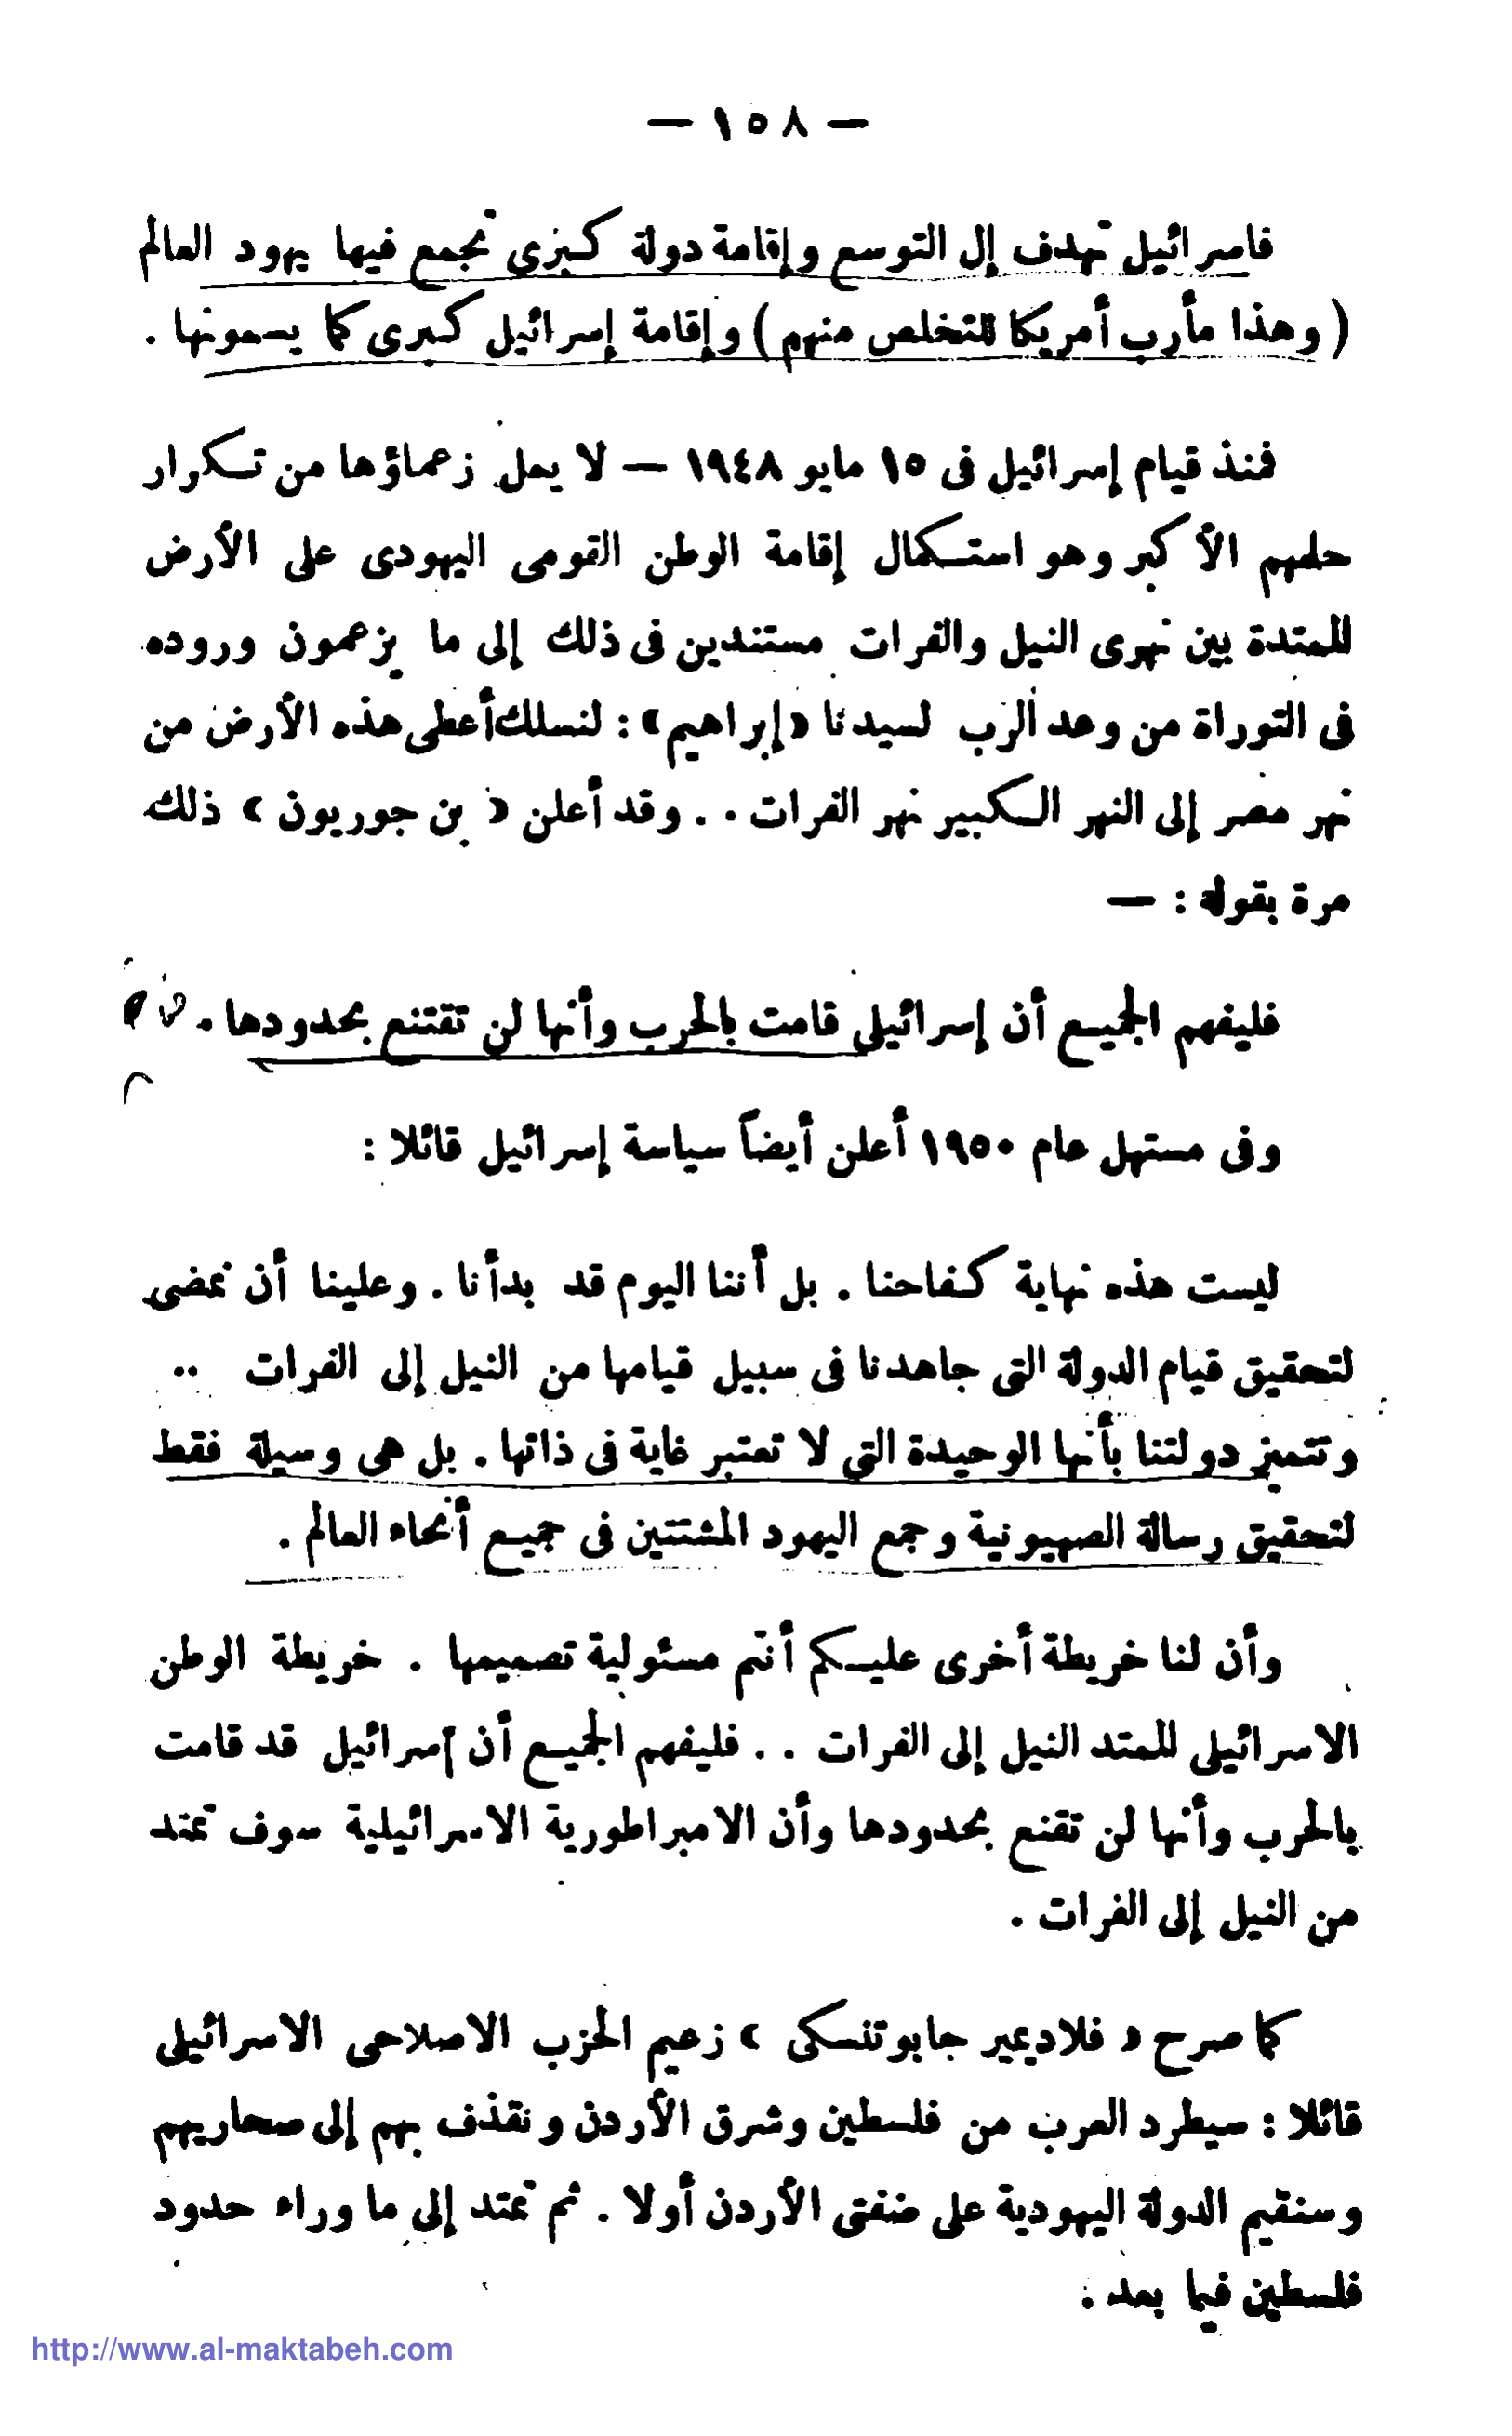 — ١٥٨ —
فاسرائيل تهدف إلى التوسع وإقامة دولة كبرى تجمع فيها يهود العالم
( وهذا مأرب أمريكا للتخلص منهم ) وإقامة إسرائيل كبرى كما يسمونها .
فمنذ قيام إسرائيل فى ١٥ مايو ١٩٤٨ — لا يمل زعماؤها من تكرار
حلمهم الأكبر وهو استكمال إقامة الوطن القومى اليهودى على الأرض
الممتدة بين نهرى النيل والفرات مستندين فى ذلك إلى ما يزعمون وروده
فى التوراة من وعد الرب لسيدنا «إبراهيم» : لنسلك أعطى هذه الأرض من
نهر مصر إلى النهر الكبير نهر الفرات . . وقد أعلن « بن جوريون » ذلك
مرة بقوله : —
فليفهم الجميع أن إسرائيل قامت بالحرب وأنها لن تقتنع بحدودها .
وفى مستهل عام ١٩٥٠ أعلن أيضاً سياسة إسرائيل قائلا :
ليست هذه نهاية كفاحنا . بل أننا اليوم قد بدأنا . وعلينا أن نمضى
لتحقيق قيام الدولة التى جاهدنا فى سبيل قيامها من النيل إلى الفرات ..
وتتميز دولتنا بأنها الوحيدة التى لا تعتبر غاية فى ذاتها . بل هى وسيلة فقط
لتحقيق رسالة الصهيونية وجمع اليهود المشتتين فى جميع أنحاء العالم .
وأن لنا خريطة أخرى عليكم أنتم مسئولية تصميمها . خريطة الوطن
الاسرائيلى الممتد النيل إلى الفرات . . فليفهم الجميع أن إسرائيل قد قامت
بالحرب وأنها لن تقنع بحدودها وأن الامبراطورية الاسرائيلية سوف تمتد
من النيل إلى الفرات .
كما صرح « فلاديمير جابوتنسكى » زعيم الحزب الاصلاحى الاسرائيلى
قائلا : سيطرد العرب من فلسطين وشرق الأردن ونقذف بهم إلى صحاريهم
وسنقيم الدولة اليهودية على ضفتى الأردن أولا . ثم تمتد إلى ما وراء حدود
فلسطين فيما بعد :
http://www.al-maktabeh.com